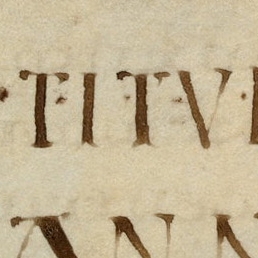 ·T·I·TV·I
ANN